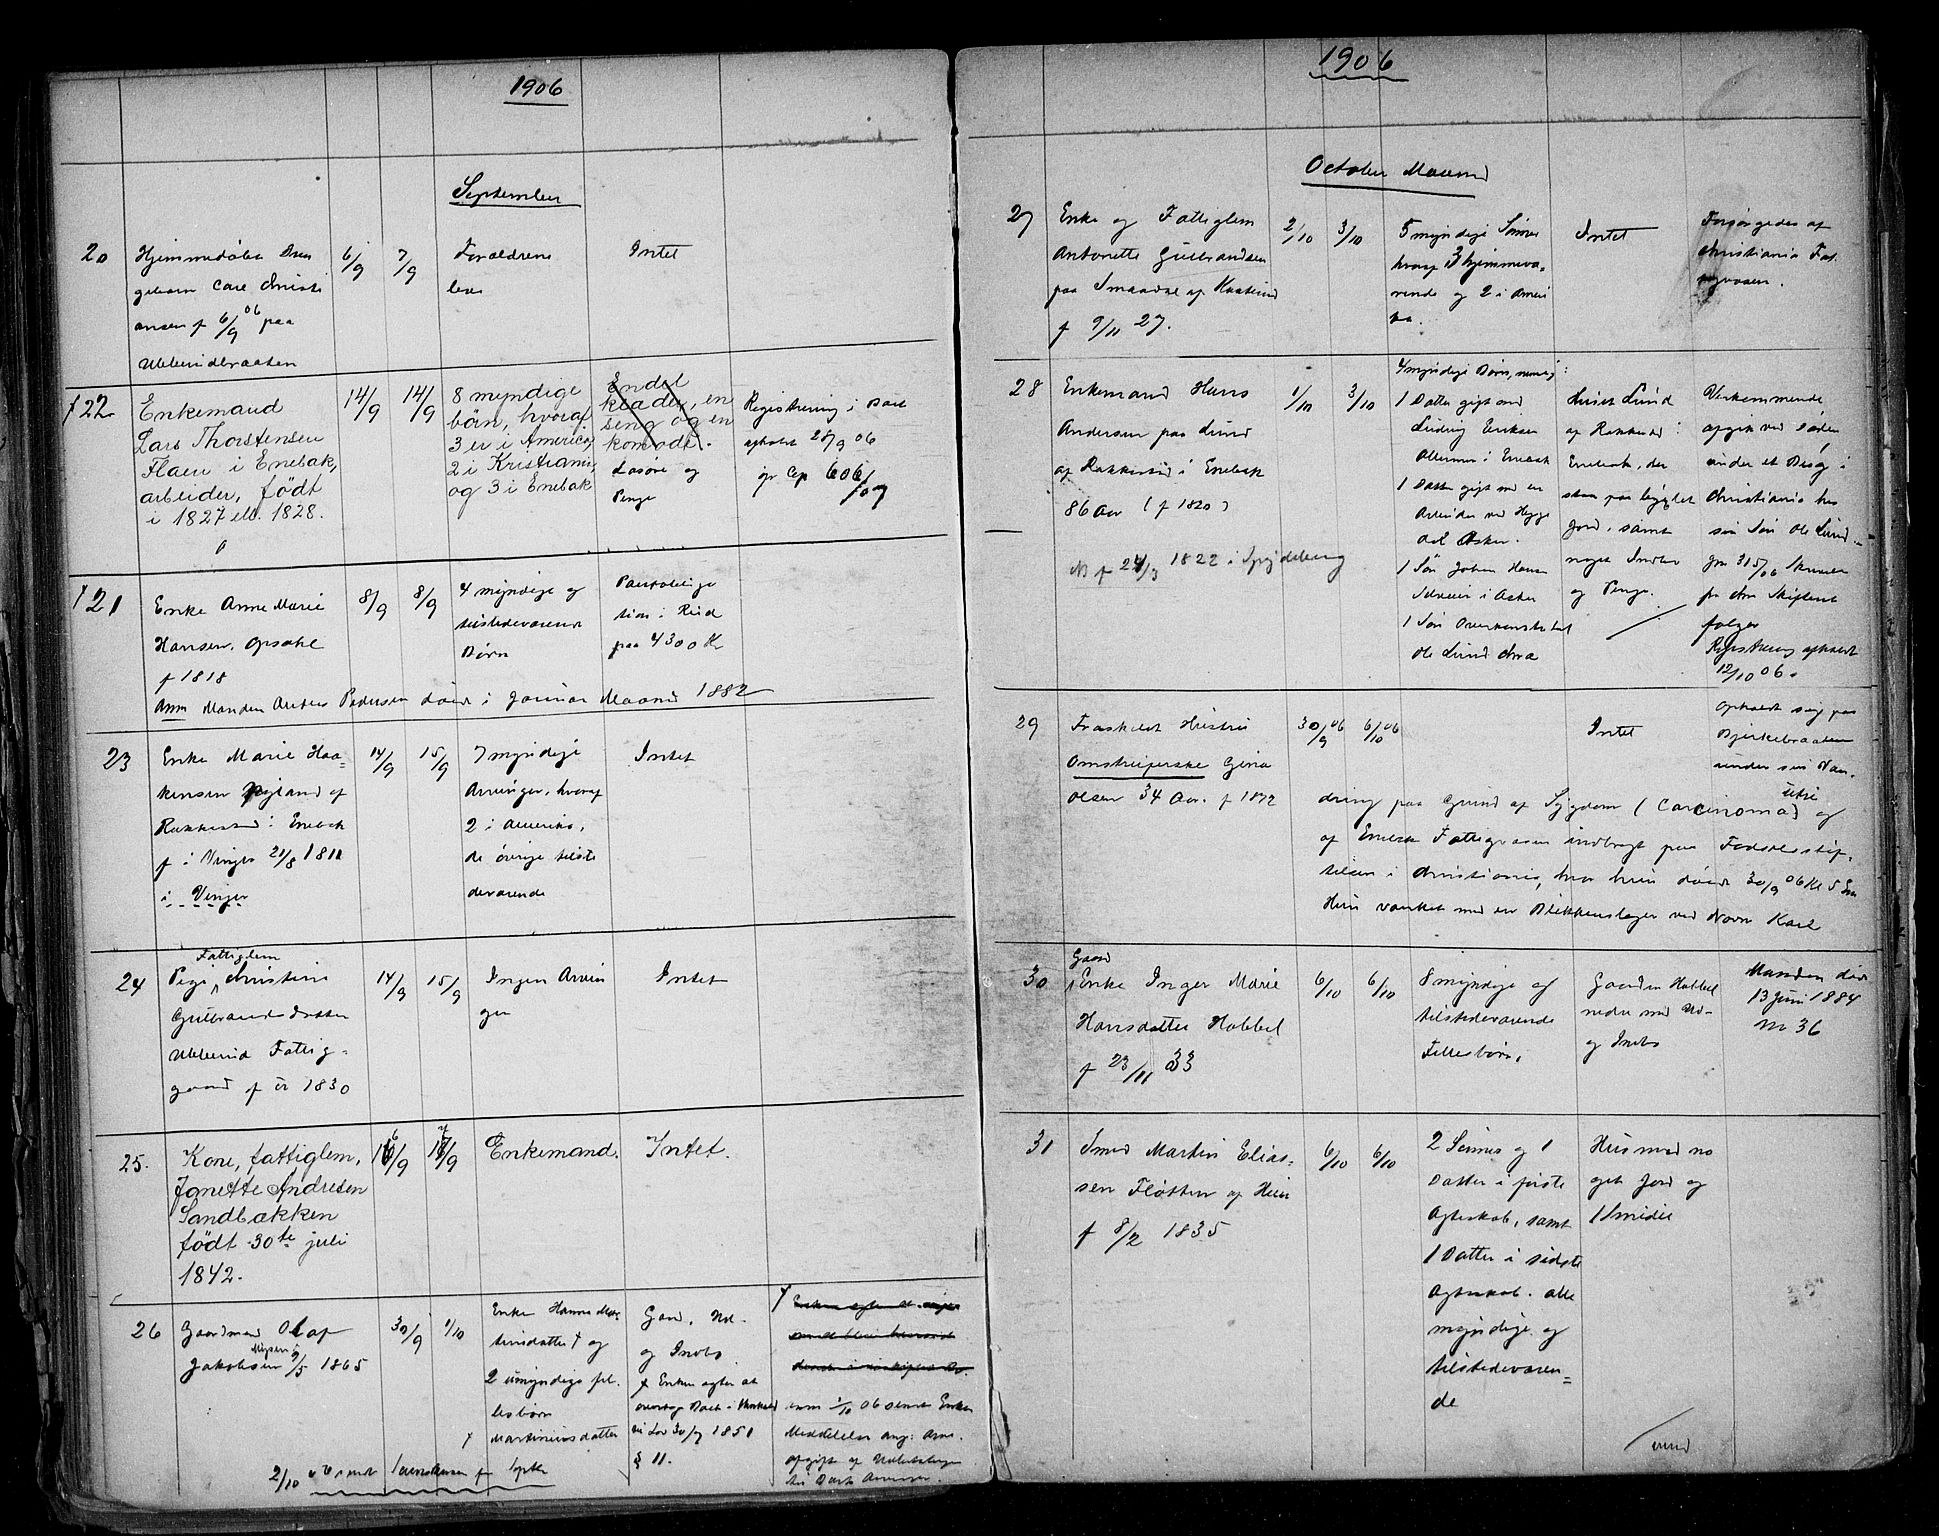 1906
September
20
Hjemmedøbt Dren
gebarn Carl Christi
ansen f 6/9 06 paa
Ullerudbraaten
6/9
7/9
Forældrene
lever
Intet
†22
Enkemand
Lars Thorstensen
Flaen i Enebak,
arbeider, født
i 1827 ell. 1828.
14/9
14/9
8 myndige
børn, hvoraf
3 er i America,
2 i Kristiania,
og 3 i Enebak
Endel
klæder, en
seng og en
komode.
Løsøre og
Penge
Registrering i Boet
afholdt 28/9 06
†21
Enke Anne Marie
Hansen, Opsahl
f 1818
8/9
8/9
4 myndige og
tilstedeværende
Børn
paa 4300 Kr
Anm Manden Anders Pedersen døde i Januar Maaned 1882
23
Enke Marie Haa=
kensen
Rakkestad i Enebak
f i Vinger 21/8 1811
i Vinger
14/9
15/9
7 myndige
Arvinger, hvoraf
2 i Amerika,
de øvrige tilste
deværende
Intet
24
Fattiglem
Pige Christine
Gulbrandsdatter
Ullerud Fattig=
gaard f år 1830
14/9
15/9
Ingen Arvin
ger
Intet
25.
Kone, fattiglem,
Jonette Andresen
Sandbækken
født 30te juli
1842.
16/9
17/9
Enkemand.
Intet.
26
Gaardmand Olaf
Jakobsen Mysen f 9/5 1865
30/9
1/10
Enke Hanna Mar
tinsdatter † og
2 umyndige fæl
lesbørn
† Martiniusdatter
Gaard, Ud-
og Indbo
† Enken agter at
overtage Boet i Henhold
til Lov 30/7 1851
§ 11.
1/10 06 sendt Enken
Meddelelse ang: Arve-
afgift af Udlodslagen
2/10
1906
October Maaned
27
Enke og Fattiglem
Antonette Gulbrandsen
paa Smaadal af Kaatrud
f 9/11 27.
2/10
3/10
5 myndige Sønner
hvoraf 3 hjemmevæ-
rende og 2 i Ameri
ka.
Intet
Forsørgedes af
Christiania Fat
tigvæsen.
28
Enkemand Hans
Andersen paa Lund
af Rakkestad i Enebak
86 Aar (f 1820)
NB f 24/3 1822 i Spydeberg
1/10
3/10
4 myndige Børn, nemlig:
1 Datter gift med
Ludvig Eriksen
i Enebak
1 Datter gift med en
Arbeider ved Hegge
dal Asker.
1 Søn Johan Hansen
i Asker
1 Søn Overkonstabel
Ole Lund Chra
Huset Lund
af Rakkestad i
Enebak, der
staar paa bygslet
Jord, samt
noget Indbo
og Penge.
Vedkommende
afgik ved Døden
under et Besøg i
Christiania hos
sin Søn Ole Lund.
følger
Registrering afholdt
12/10 06.
29
Fraskilt Hustru
Omstreiferske Gina
Olsen 34 Aar. f 1872
30/9 06
6/10 06
Intet
Opholdt sig paa
Bjerkebraaten
under sin Van-
dring paa Grund af Sygdom (Carcinoma uteri) og
af Enebak Fattigvæsen indbragt paa Fødselsstif-
telsen i Christiania, hvor hun døde 30/9 06 Kl 5 Em
Hun vanket med en Blikkenslager ved Navn Karl
30
Gaard
Enke Inger Marie
Hansdatter Hobbel
f 23/11 33
6/10
6/10
8 myndige og
tilstedeværende
Fællesbørn.
Gaarden Hobbel
nedre med Ud-
og Indbo
Manden død
13 Juni 1884
No 36
31
Smed Martin Elias-
sen Fløtten af Huer
f 8/2 1835
6/10
6/10
2 Sønner og 1
Datter i første
Ægteskab, samt
1 Datter i sidste
Ægteskab. alle
myndige og
tilstedeværen=
de
Hus med no
get Jord og
1 Smidie
vend